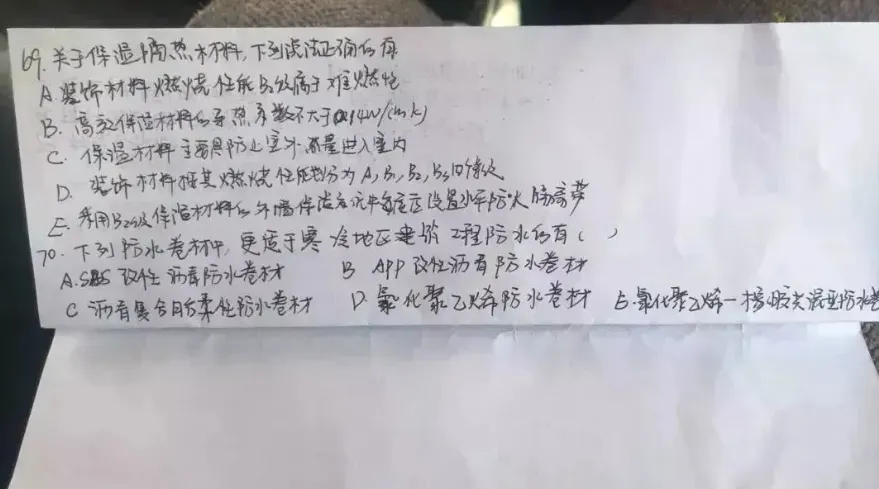 69. 关于保温隔热材料,下列说法正确的有
A. 装饰材料燃烧性能B2级属于难燃性
B. 高效保温材料的导热系数不大于0.14W/(m·k)
C. 保温材料主要是防止室外热量进入室内
D. 装饰材料按其燃烧性能划分为A, B1, B2, B3四个等级
E. 采用B2级保温材料的外墙保温系统中每层应设置水平防火隔离带
70. 下列防水卷材中, 更适于寒冷地区建筑工程防水的有( )
A. SBS 改性沥青防水卷材 B APP 改性沥青防水卷材
C 沥青复合胎柔性防水卷材 D. 氯化聚乙烯防水卷材 E. 氯化聚乙烯一橡胶共混型防水卷